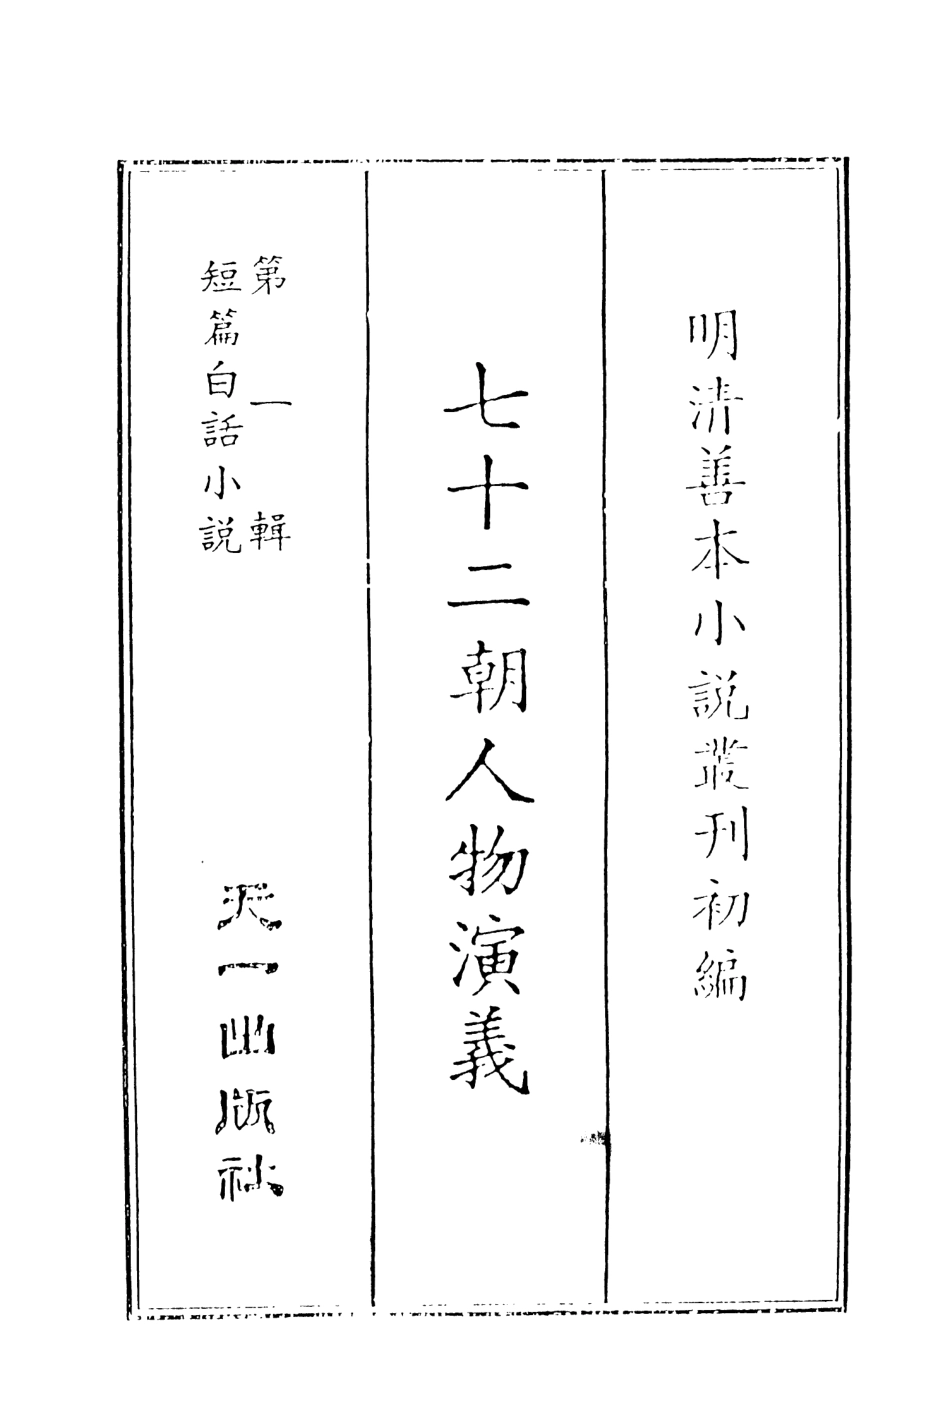 明清善本小說叢刊初編
七十二朝人物演義
第一輯
短篇白話小說
天一出版社